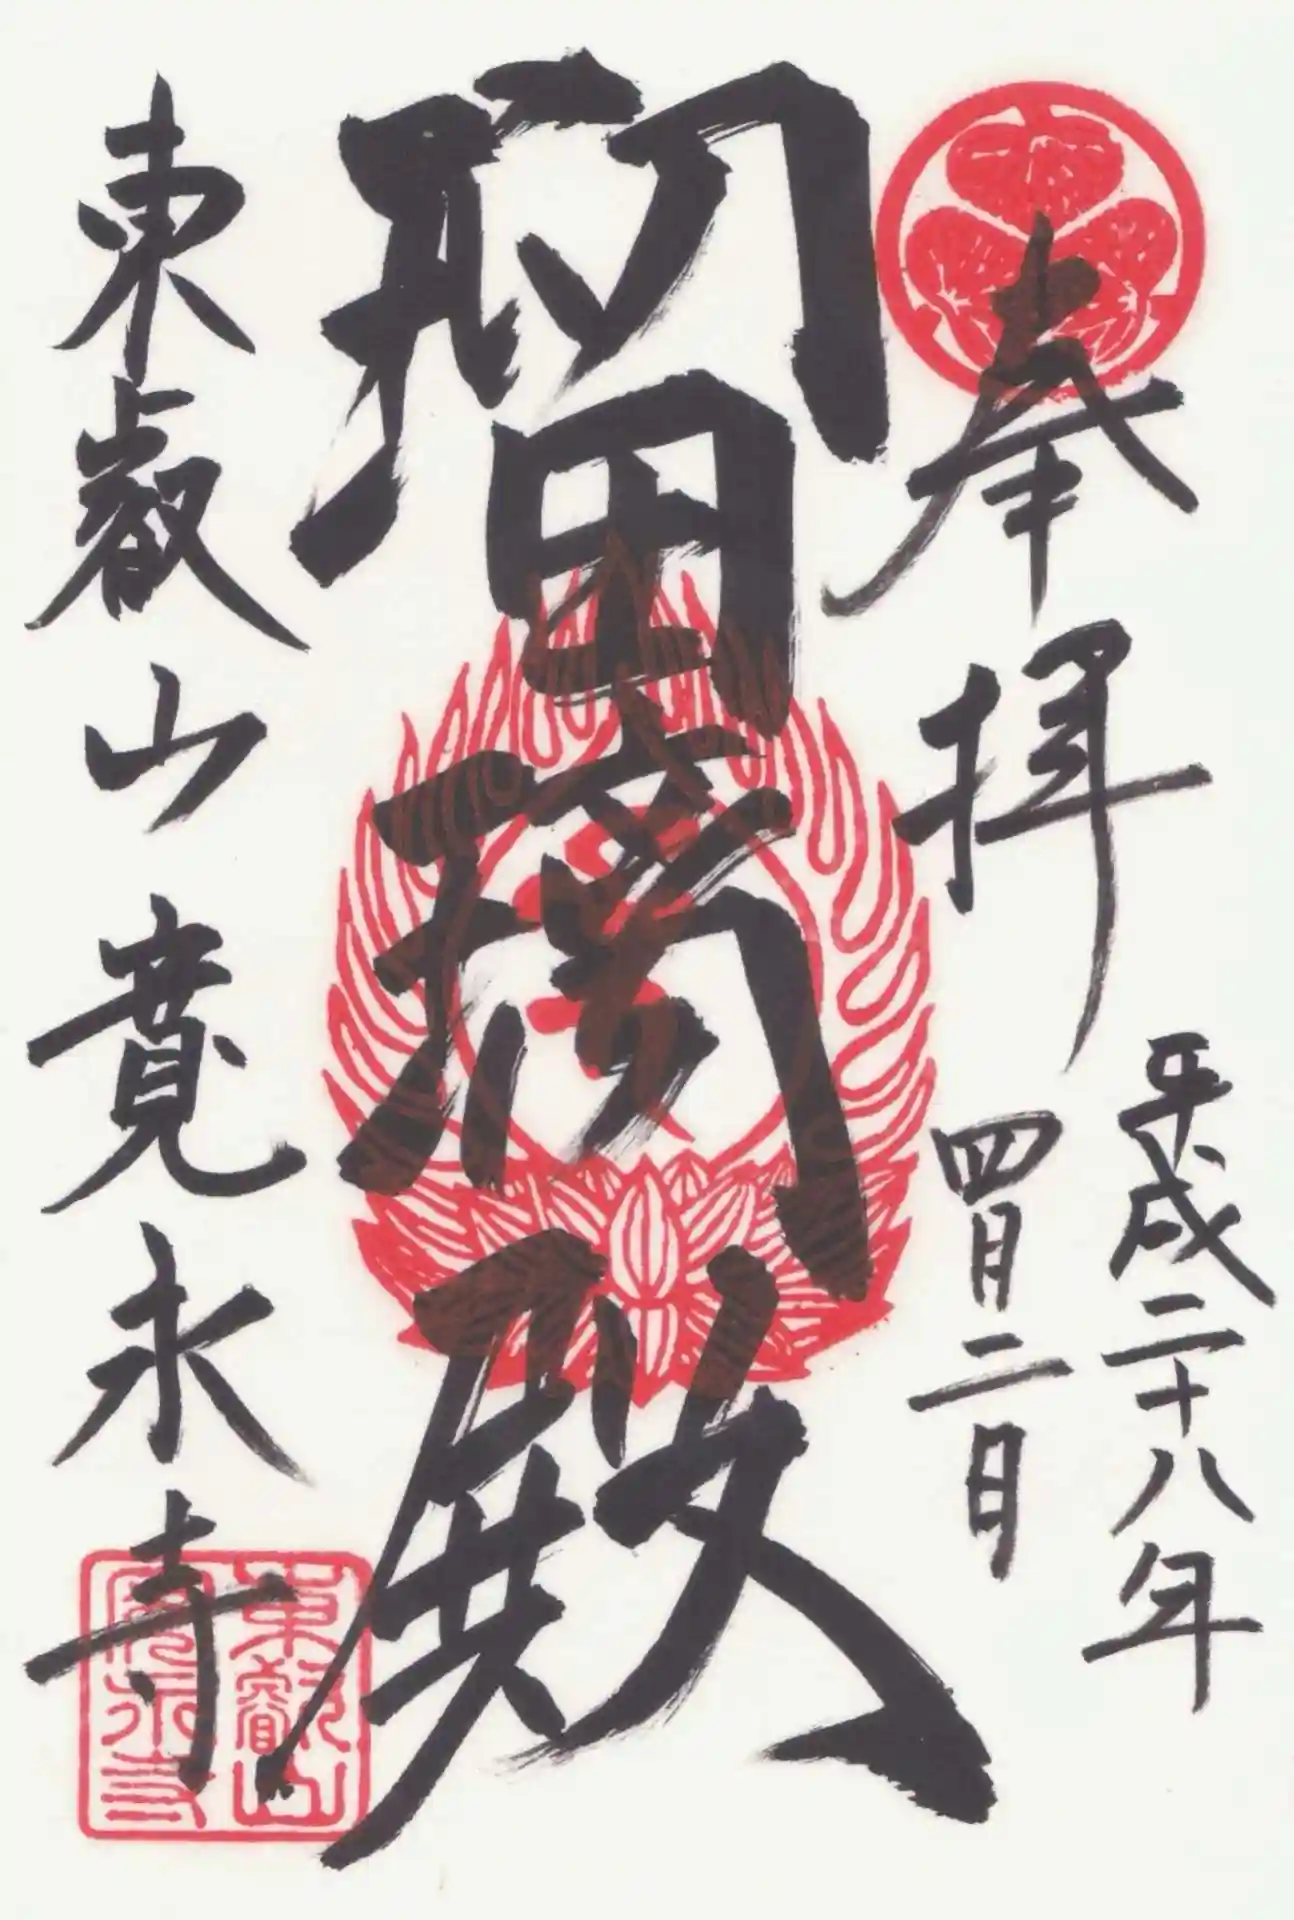 奉拝
平成二十八年
四月二日
瑠璃殿
東叡山寛永寺
東叡山
寛永寺